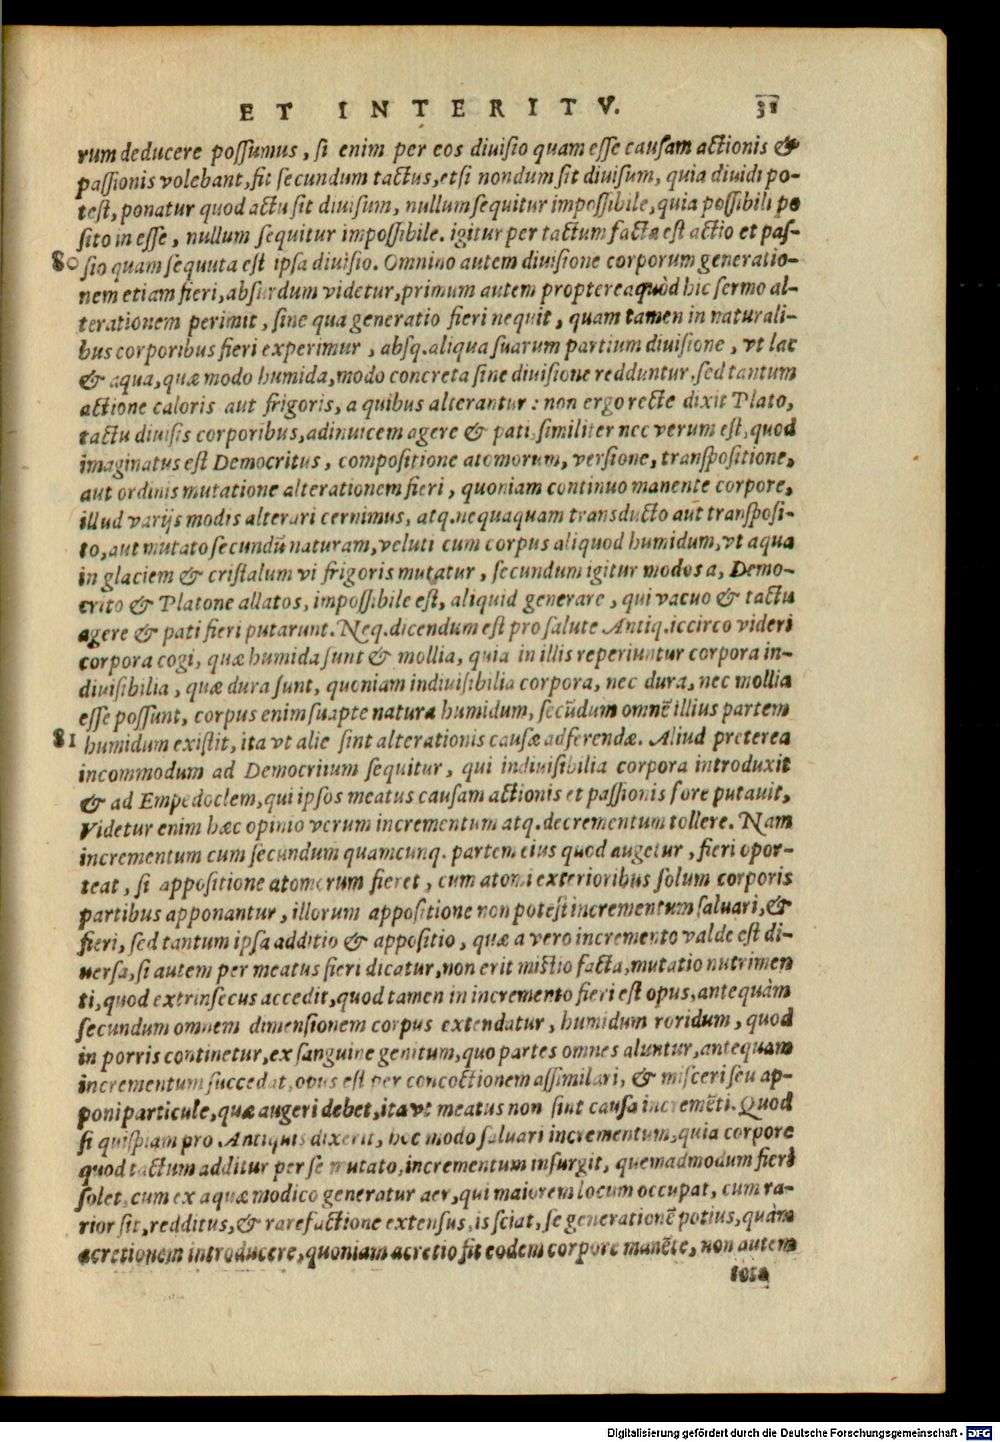 ET INTERITV. 31
rum deducere possumus, si enim per eos diuisio quam esse causam actionis &
passionis volebant, fit secundum tactus, etsi nondum sit diuisum, quia diuidi po-
test, ponatur quod actu sit diuisum, nullum sequitur impossibile, quia possibili po
sito in esse, nullum sequitur impossibile. igitur per tactum factæ est actio et pas-
80 sio quam sequuta est ipsa diuisio. Omnino autem diuisione corporum generatio-
nem etiam fieri, absurdum videtur, primum autem propterea quòd hic sermo al-
terationem perimit, sine qua generatio fieri nequit, quam tamen in naturali-
bus corporibus fieri experimur, absq. aliqua suarum partium diuisione, vt lac
& aqua, quæ modo humida, modo concreta sine diuisione redduntur, sed tantum
actione caloris aut frigoris, a quibus alterantur: non ergo recte dixit Plato,
tactu diuisis corporibus, adinuicem agere & pati, similiter nec verum est, quod
imaginatus est Democritus, compositione atomorum, versione, transpositione,
aut ordinis mutatione alterationem fieri, quoniam continuo manente corpore,
illud varijs modis alterari cernimus, atq. nequaquam transducto aut transposi-
to, aut mutato secundũ naturam, veluti cum corpus aliquod humidum, vt aqua
in glaciem & cristalum vi frigoris mutatur, secundum igitur modos a, Demo-
crito & Platone allatos, impossibile est, aliquid generare, qui vacuo & tactu
agere & pati fieri putarunt. Neq. dicendum est pro salute Antiq. iccirco videri
corpora cogi, quæ humida sunt & mollia, quia in illis reperiuntur corpora in-
diuisibilia, quæ dura sunt, quoniam indiuisibilia corpora, nec dura, nec mollia
esse possunt, corpus enim suapte natura humidum, secũdum omnẽ illius partem
81 humidum existit, ita vt alie sint alterationis causæ adferendæ. Aliud preterea
incommodum ad Democritum sequitur, qui indiuisibilia corpora introduxit
& ad Empedoclem, qui ipsos meatus causam actionis et passionis fore putauit,
Videtur enim hæc opinio verum incrementum atq. decrementum tollere. Nam
incrementum cum secundum quamcunq. partem eius quod augetur, fieri opor-
teat, si appositione atomorum fieret, cum atomi exterioribus solum corporis
partibus apponantur, illorum appositione non potest incrementum saluari, &
fieri, sed tantum ipsa additio & appositio, quæ a vero incremento valde est di-
uersa, si autem per meatus fieri dicatur, non erit mistio facta, mutatio nutrimen
ti, quod extrinsecus accedit, quod tamen in incremento fieri est opus, antequàm
secundum omnem dimensionem corpus extendatur, humidum roridum, quod
in porris continetur, ex sanguine genitum, quo partes omnes aluntur, antequam
incrementum succedat, opus est per concoctionem assimilari, & misceri seu ap-
poni particule, quæ augeri debet, ita vt meatus non sint causa incremẽti. Quod
si quispiam pro Antiquis dixerit, hoc modo saluari incrementum, quia corpore
quod tactum additur per se mutato, incrementum insurgit, quemadmodum fieri
solet, cum ex aquæ modico generatur aer, qui maiorem locum occupat, cum ra-
rior sit, redditus, & rarefactione extensus, is sciat, se generationẽ potius, quàm
acretionem introducere, quoniam acretio fit eodem corpore manẽte, non autem
Digitalisierung gefördert durch die Deutsche Forschungsgemeinschaft - DFG